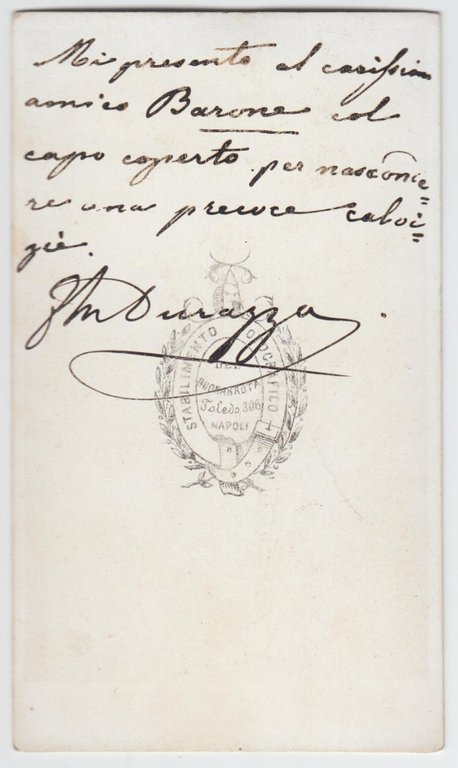 Mi presento al carissimo
amico Barone col
capo coperto per nascõnde=
re una precoce calvi=
zie.
Durazzo.
STABILIMENTO FOTOGRAFICO
DEL
BUONARROTI
Toledo, 306
NAPOLI